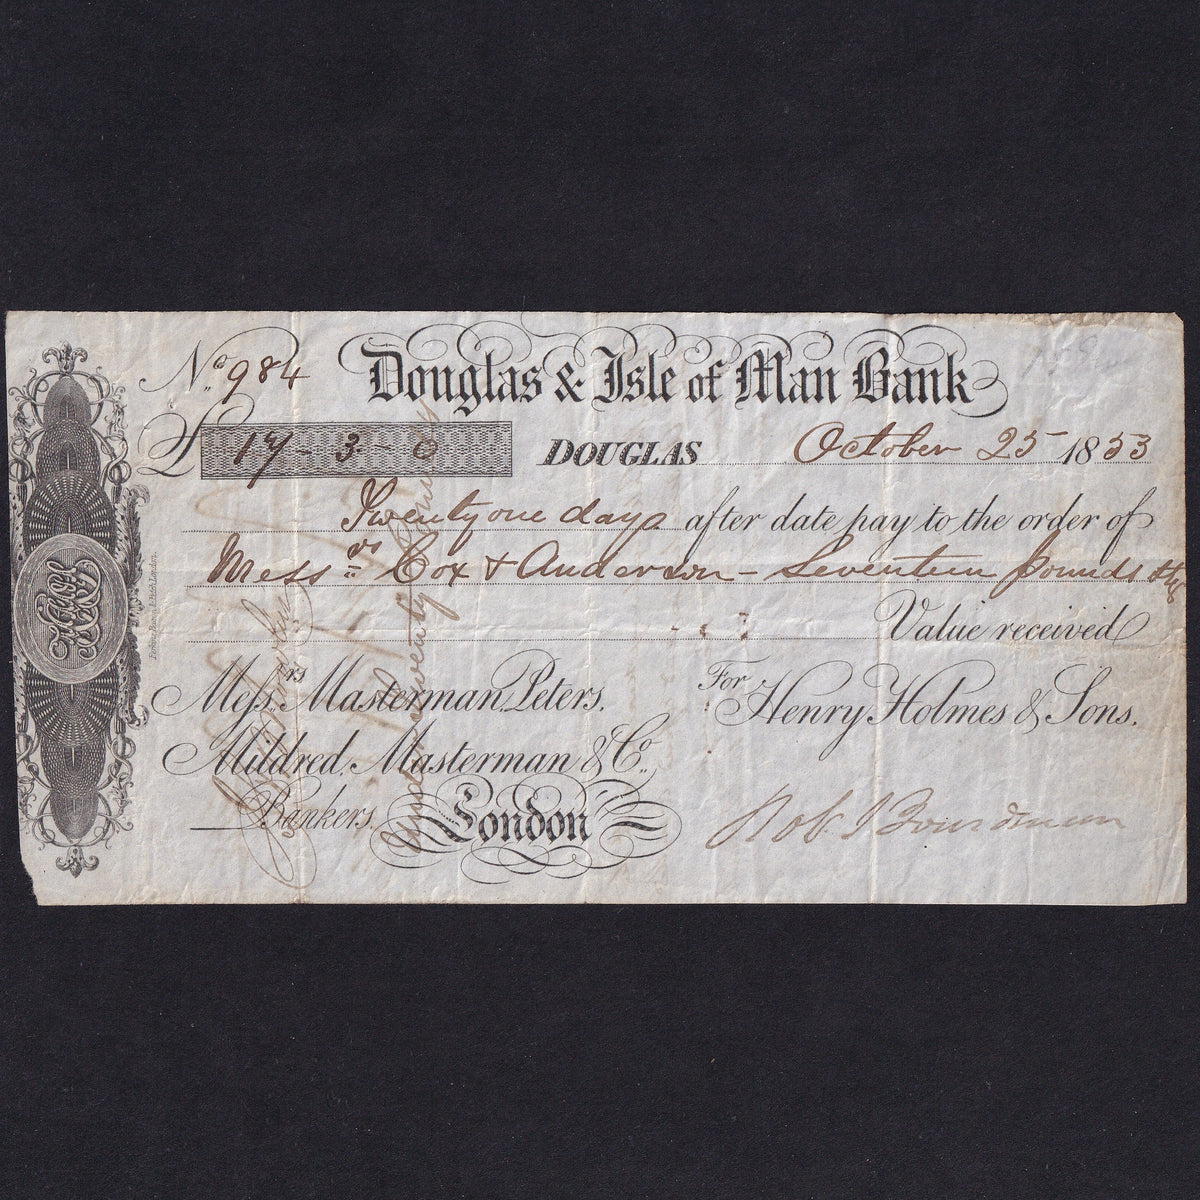 No. 984 Douglas & Isle of Man Bank
£ 17 - 3 - 0 DOUGLAS October 25 1853
Twenty one days after date pay to the order of
Messrs Cox & Anderson - Seventeen pounds 3/
Value received
Messrs Masterman, Peters,
Mildred, Masterman & Co.,
Bankers, London
For Henry Holmes & Sons,
Robt J Boardman